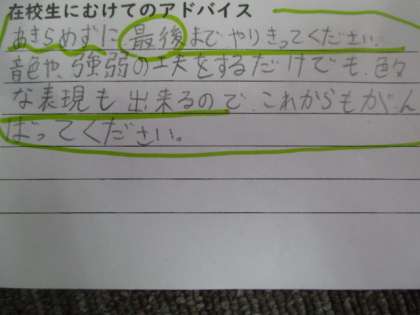 在校生にむけてのアドバイス
あきらめずに最後までやりきってください。
音色や、強弱の工夫をするだけでも、色々
な表現も出来るので、これからもがん
ばってください。